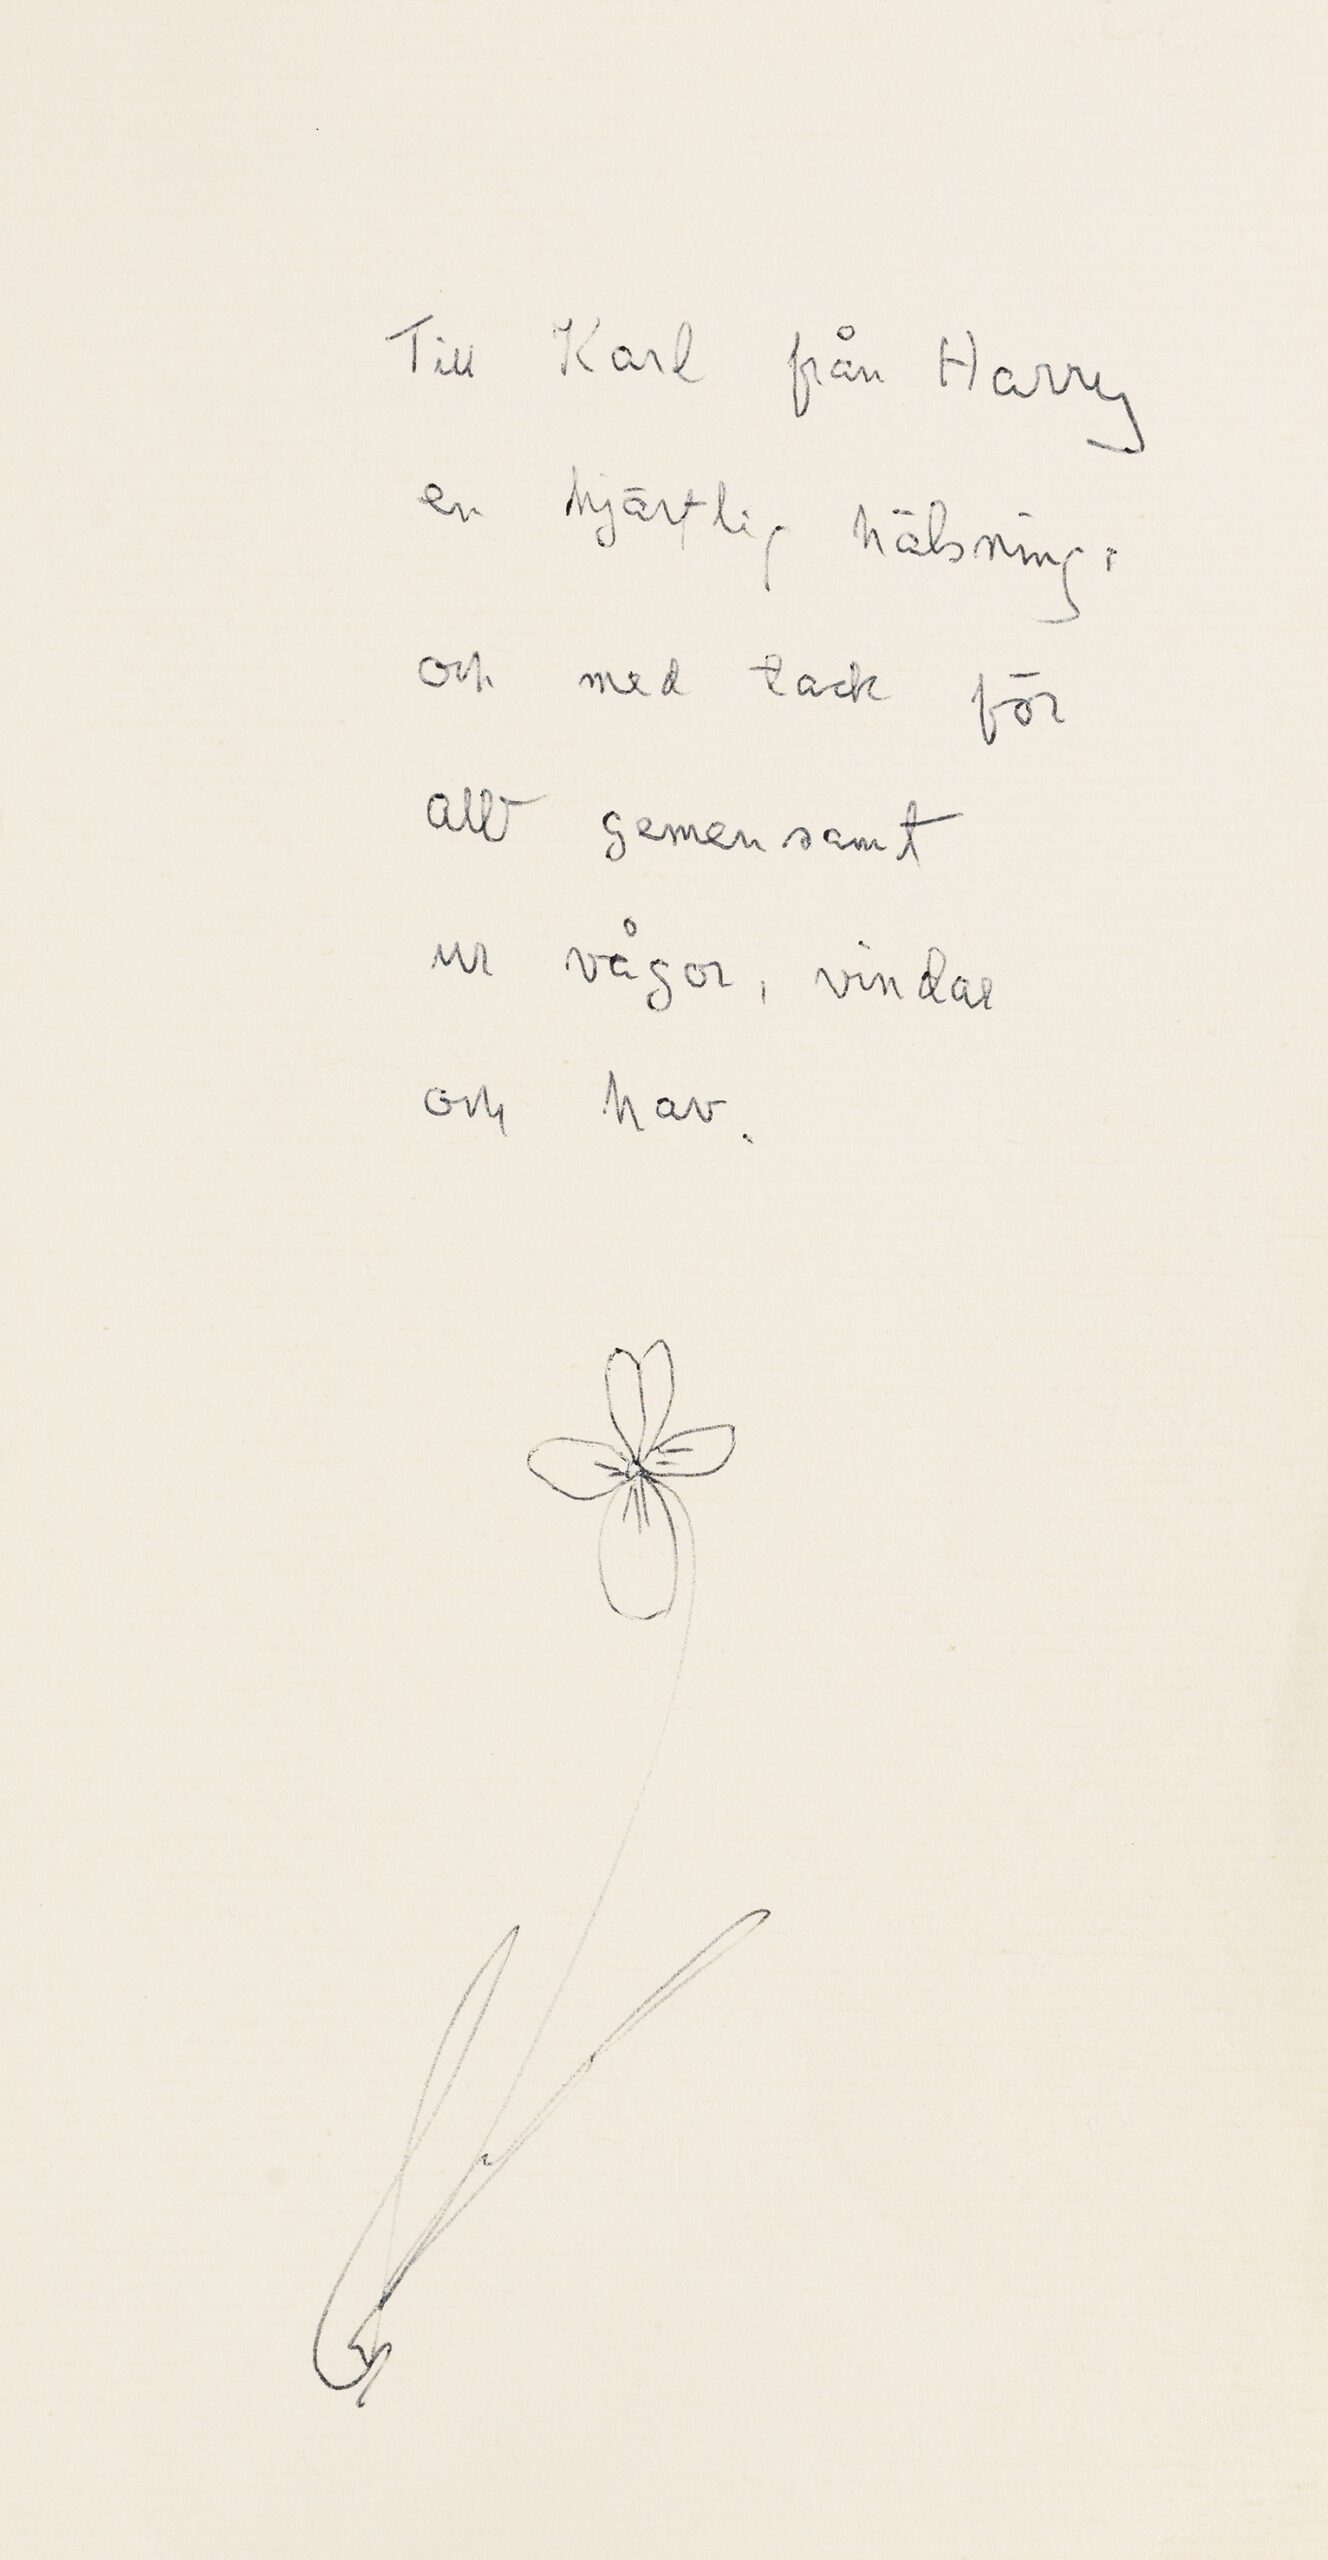 Till Karl från Harry
en hjärtlig hälsning,
och med tack för
allt gemensamt
ur vågor, vindar
och hav.